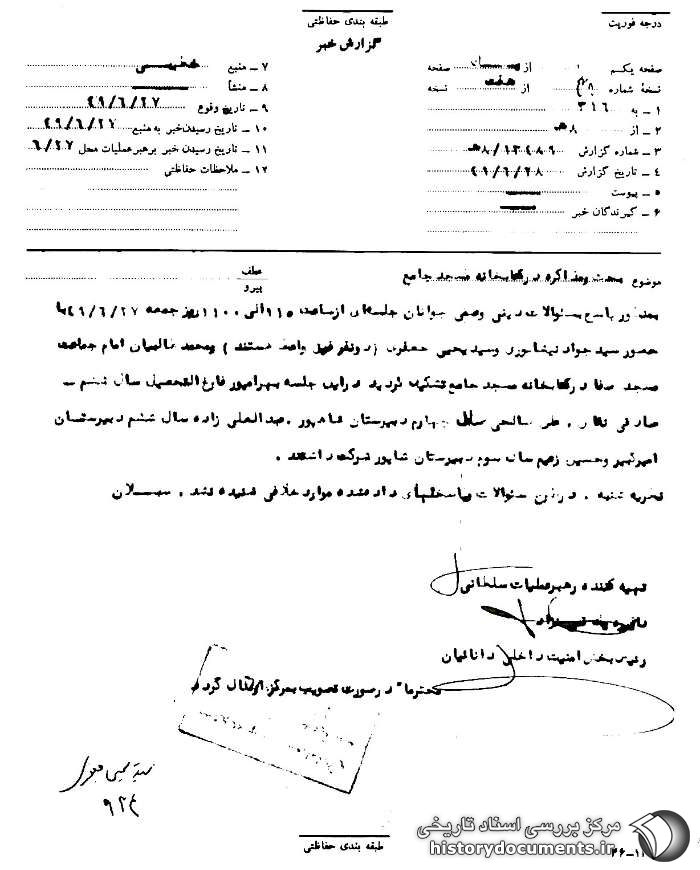 درجه فوریت
طبقه بندی حفاظتی
گزارش خبر
صفحه یکم از صفحه
نسخهٔ شماره از هفت نسخه
۱ – به ۳۱۶
۲ – از ۸هـ
۳ – شماره گزارش ۸/۱۳۴۸۹هـ
۴ – تاریخ گزارش ۴۹/۶/۲۸
۵ – پیوست
۶ – گیرندگان خبر
۷ – منبع
۸ – منشأ
۹ – تاریخ وقوع ۴۹/۶/۲۷
۱۰ – تاریخ رسیدن خبر به منبع ۴۹/۶/۲۷
۱۱ – تاریخ رسیدن خبر برهبر عملیات محل ۶/۲۷
۱۲ – ملاحظات حفاظتی
موضوع بحث و مذاکره در کتابخانه مسجد جامع
عطف
پیرو
بمنظور پاسخ بسئوالات دینی وعلمی جوانان جلسه‌ای از ساعت الی ۱۱۰۰ روز جمعه ۴۹/۶/۲۷ با
حضور سید جواد نیشابوری وسید یحیی جعفری (دو نفر فوق واعظ هستند) ومحمد عالمیان امام جماعت
مسجد صفا در کتابخانه مسجد جامع تشکیل گردید در این جلسه بهرامپور فارغ التحصیل سال ششم –
صادقی نگار . علی صالحی سال چهارم دبیرستان شاهپور . عبدالعلی زاده سال ششم دبیرستان
امیرکبیر وحسین زعیم سال سوم دبیرستان شاپور شرکت داشتند .
نظریه شنبه . در متن سئوالات وپاسخهای داده شده موارد خلافی شنیده نشد . سبلان
تهیه کننده رهبر عملیات سلطانی
رئیس بخش امنیت داخلی دانائیان
محترما" در صورت تصویب بمرکز ارسال گردد
سید یحیی جعفری
۹۲۴
طبقه بندی حفاظتی
مرکز بررسی اسناد تاریخی
historydocuments.ir